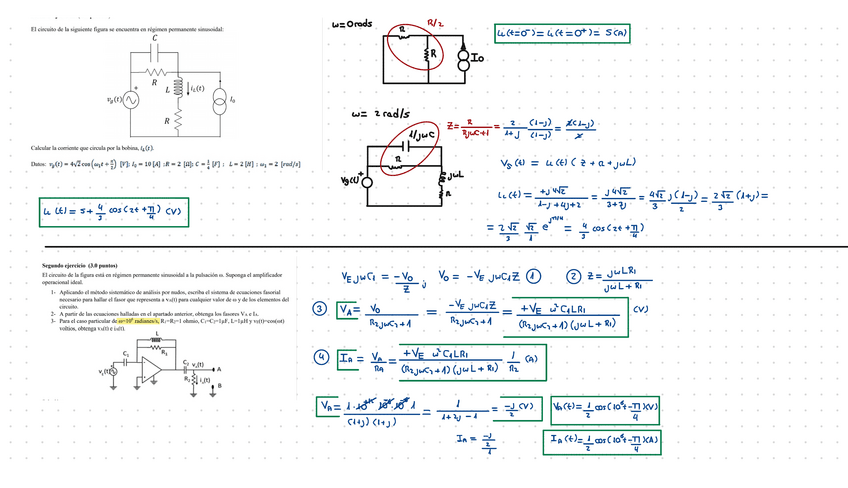 El circuito de la siguiente figura se encuentra en régimen permanente sinusoidal:
C
R
L
i_L(t)
v_g(t)
I_0
R
Calcular la corriente que circula por la bobina, i_L(t).
Datos: v_g(t) = 4√2 cos(ω₁t + π/2) [V]; I₀ = 10 [A]; R = 2 [Ω]; C = 1/4 [F]; L = 2 [H]; ω₁ = 2 [rad/s]
iL(t) = 5 + 4/3 cos(2t + π/4) (V)
ω=0 rads
R/2
R
R
Io
iL(t=0⁻) = iL(t=0⁺) = 5(A)
ω = 2 rad/s
1/jωC
R
Vg(t)
jωL
R
Z = R/(RjωC+1) = 2/(1+j) (1-j)/(1-j) = 2(1-j)/2
= 2√2/3 √2/1 e^(jπ/4) = 4/3 cos(2t + π/4)
Segundo ejercicio (3.0 puntos)
El circuito de la figura está en régimen permanente sinusoidal a la pulsación ω. Suponga el amplificador
operacional ideal.
1- Aplicando el método sistemático de análisis por nudos, escriba el sistema de ecuaciones fasorial
necesario para hallar el fasor que representa a v_A(t) para cualquier valor de ω y de los elementos del
circuito.
2- A partir de las ecuaciones halladas en el apartado anterior, obtenga los fasores V_A e I_A.
3- Para el caso particular de ω=10⁶ radianes/s, R₁=R₂=1 ohmio, C₁=C₂=1μF, L=1μH y v_E(t)=cos(ωt)
voltios, obtenga v_A(t) e i_A(t).
L
R₁
C₁
C₂
v_A(t)
A
R₂
i_A(t)
B
VE jωC1 = -Vo/Z ; Vo = -VE jωC1Z ① ② Z = jωLR1/(jωL+R1)
③ VA = Vo/(R2jωC2+1) = -VE jωC1Z/(R2jωC2+1) = +VE ω²C1LR1/((R2jωC2+1)(jωL+R1)) (V)
④ IA = VA/RA = +VE ω²C1LR1/((R2jωC2+1)(jωL+R1)) 1/R2 (A)
= 1/(1+2j-1) = -j/2 (V)
VA(t) = 1/2 cos(10⁶t - π/4)(V)
IA = -j/2/1
IA(t) = 1/2 cos(10⁶t - π/4)(A)